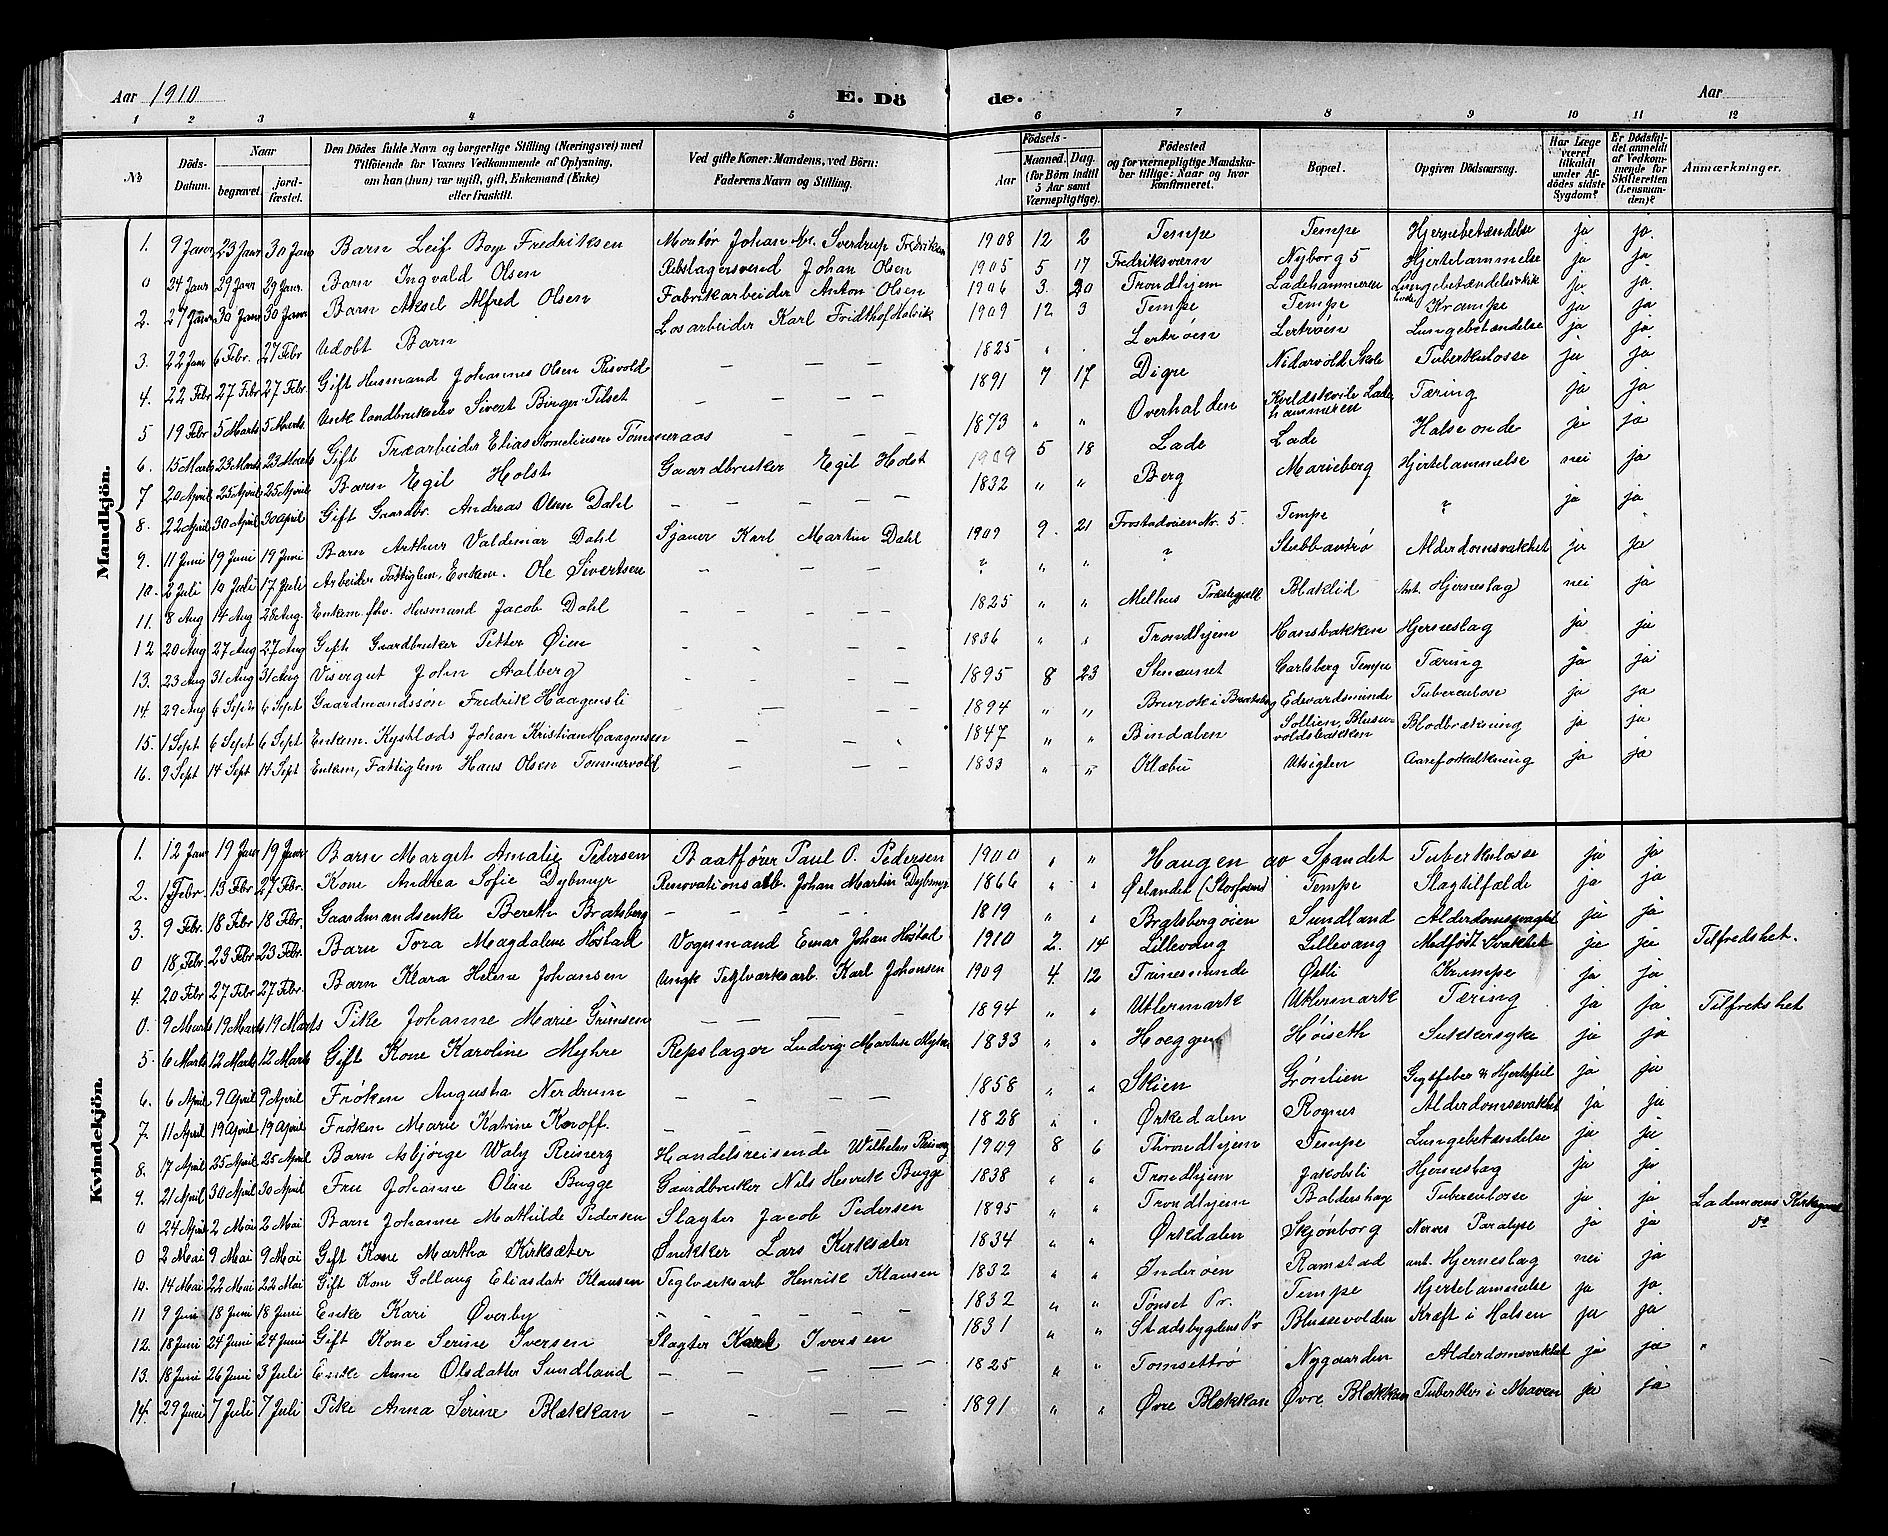 Aar 1910
E. Dö de.
Aar
1 2 3 4 5 6 7 8 9 10 11 12
No
Döds-Datum.
Naar
begravet.
jord-fæstet.
Den Dödes fulde Navn og borgerlige Stilling (Næringsvei) med Tilföiende for Voxnes Vedkommende af Oplysning, om han (hun) var ugift, gift, Enkemand (Enke) eller fraskilt.
Ved gifte Koner: Mandens, ved Börn: Faderens Navn og Stilling.
Födsels-
Aar
Maaned. Dag.
(for Börn indtil 5 Aar samt Værnepligtige).
Födested og for værnepligtige Mandskaber tillige: Naar og hvor konfirmeret.
Bopæl.
Opgiven Dödsaarsag.
Har Læge været tilkaldt under Afdödes sidste Sygdom?
Er Dödsfaldet anmeldt af Vedkommende for Skifteretten (Lensmanden)?
Anmærkninger.
Mandkjön.
1. 9 Janr 23 Janr 30 Janr Barn Leif Boye Fredriksen Montör Johan Sverdrup Fredriksen 1908 12 2 Tempe Tempe Hjernebetændelse ja ja
0 24 Janr 29 Janr 29 Janr. Barn Ingvald Olsen Rebslagersvend Johan Olsen 1905 5 17 Fredriksværn Nyborg 5 Hjertelammelse ja ja
2. 27 Janr 30 Janr 30 Janr Barn Aksel Alfred Olsen Fabrikarbeider Anton Olsen 1906 3. 20 Trondhjem Ladehammeren ja ja
3. 22 Janr 6 Febr. 27 Febr Udöbt Barn Losarbeider Karl Fridthof 1909 12 3 Tempe Tempe Krampe ja ja
4. 22 Febr 27 Febr 27 Febr Gift Husmand Johannes Olsen Risvold — — — 1825 " . Lertröen Lertröen Lungebetændelse ja ja
5 19 Febr 5 Marts 5 Marts Unk landbrukselev Sivert Birger Tilset — — — 1891 7 17 Digre Nidarvold Skole Tuberkulosse ja ja
6. 15 Marts 23 Marts 23 Marts Gift Træarbeider Elias Korneliusen Tömmeraas — — 1873 " " Overhalden Kveldskvile Ladehammeren Tæring ja ja
7 20 April 25 April 25 April Barn Egil Holst Gaardbruker Egil Holst 1909 5 18 Lade Lade Halseonde ja ja
8. 22 April 30 April 30 April Gift Gaardbr. Andreas Olsen Dahl — — — 1832 " " Berg Marieberg Hjertelammelse nei ja
9. 11 Juni 19 Juni 19 Juni Barn Arthur Valdemar Dahl Sjauer Karl Martin Dahl 1909 9. 21 Frostadveien Nr. 5. Tempe ? ja ja
10. 2 Juli 10 Juli 17 Juli Arbeider, Fattiglem, Enkem. Ole Sivertsen — — — ? " " ? Stubbantrö Alderdomsvakhet ja ja
11. 8 Aug 14 Aug 28 Aug. Enkem. fhv. Husmand Jacob Dahl — — — 1825 " " Melhus Præstegjæld Blaklid Ant. Hjerneslag nei ja
12 20 Aug 27 Aug 27 Aug Gift Gaardbruker Petter Öien — — — 1836 " " Trondhjem Hansbakken Hjerneslag ja ja
13. 23 Aug 31 Aug 31 Aug Visergut John Aalberg — — — 1895 8 23 Stenaunet Carlsberg Tempe Tæring ja ja
14. 29 Aug 6 Septr 6 Sept Gaardmandssön Fredrik Haagensli — — — 1894 " " Edwardsminde Tuberculose ja ja
15. 1 Sept 6 Sept 6 Sept Enkem. Kystlods Johan Kristian Haagensen — — 1847 " " Bindalen Sollien, Blusuvoldsbakken Blodbrækning ja ja
16. 9 Sept 14 Sept 14 Sept Enkem, Fattiglem Hans Olsen Tømmervold — — — 1833 " " Klæbu Utsigten Aareforkalkning ja ja
Kvindekjön.
1. 12 Janr 19 Janr 19 Janr Barn Marget Amalie Petersen Baatförer Paul O. Pedersen 1900 " " Haugen av Spandet Tuberkulosse ja ja
2. 1 Febr. 13 Febr 27 Febr. Kone Andrea Sofie Dybmyr Renovationsarb. Johan Martin Dybmyr 1866 " " Ørlandet (Storfosna) Tempe Slagtilfælde ja ja
3. 9 Febr. 18 Febr 18 Febr. Gaardmandsenke Bereth Bratsberg — — — — 1819 " " Bratsbergøien Sundland Alderdomssvaghet ja ja
0 18 Febr. 23 Febr 23 Febr. Barn Tora Magdalene Höstad Vognmand Einar Johan Höstad 1910 2. 14 Lillevang Lillevang Medfödt Svakhet ja ja Tilfredshet.
4. 20 Febr 27 Febr 27 Febr. Barn Klara Helene Johansen Ungk Teglværksarb. Karl Johansen 1909 4. 12 Trinesminde Østli Krampe ja ja
0. 9 Marts 19 Marts 19 Marts Pike Johanne Marie Grimsen — — — — 1894 " " Utlermark Utlermark Tæring ja ja Tilfrekshet
5 6 Marts 12 Marts 12 Marts Gift Kone Karoline Myhre Repslager Ludvig Martin Myhre 1833 " " Hoeggen Höiseth Sukkersyke ja ja
6. 6 April 9 April 9 April Fröken Augusta Nerdrum — — — — 1858 " " Skien Grönlien Gigtfeber & Hjertefeil ja ja
7. 11 April 19 April 19 April Fröken Marie Katrine Knoff. — — — — 1828 " " Ørkedalen Rognes Alderdomsvakhet ja ja
8. 17 April 25 April 25 April Barn Asbjörge Waly Reinerz Handelsreisende Wilhelm Reinerz 1909 8 6 Throndhjem Tempe Lungebetændelse ja ja
9. 21 April 30 April 30 April Fru Johanne Oline Bugge Gaardbruker Nils Henrik Bugge 1838 " " Trondhjem Jakobsli Hjerneslag ja ja
0 24 April 2 Mai 2 Mai Barn Johanne Mathilde Pedersen Slagter Jacob Pedersen 1895 " " Trondhjem Baldershage Tuberculosse ja ja Lademoens Kirkegaard
0 2 Mai 9 Mai 9 Mai Gift Kone Martha Kirksæter Önsker Lars Kirksæter 1834 " " Ørkedalen Skjönborg Nerves Paralyse ja ja do
10. 14 Mai 22 Mai 22 Mai Gift Kone Gollaug Eliasdatr Klausen Teglverksarb Henrik Klausen 1832 " " Inderöen Ramstad ant. Hjerneslag nei ja
11 9 Juni 18 Juni 18 Juni Enke Kari Överby — — — — 1832 " " Tönset Pr. Tempe Hjertelammelse ja ja
12. 18 Juni 24 Juni 24 Juni Gift Kone Serine Iversen Slagter Karl Iversen 1831 " " Stadsbygdens Pr Blussevolden Kræft i Halsen ja ja
13. 18 Juni 26 Juni 3 Juli Enke Anne Olsdatter Sundland — — — — 1825 " " Tomsettrö Nygaarden Alderdomsvakhet ja ja "
14. 29 Juni 7 Juli 7 Juli Pike Anna Serine Blekkan — — — — 1891 " " Övre Blekkan Övre Blekkan Tuberkler i Maven ja ja